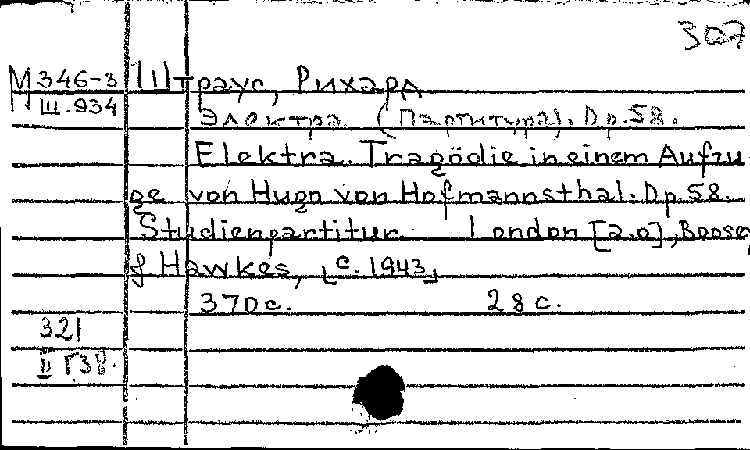 307
М346-3 Штраус, Рихард
Ш.934 Электра (Партитура). Op.58.
Elektra. Tragödie in einem Aufzu
ge von Hugo von Hofmannsthal. Op.58.
Studienpartitur. London [a.o], Boosey
& Hawkes, [c. 1943]
370 с. 28 с.
321
II Г38.